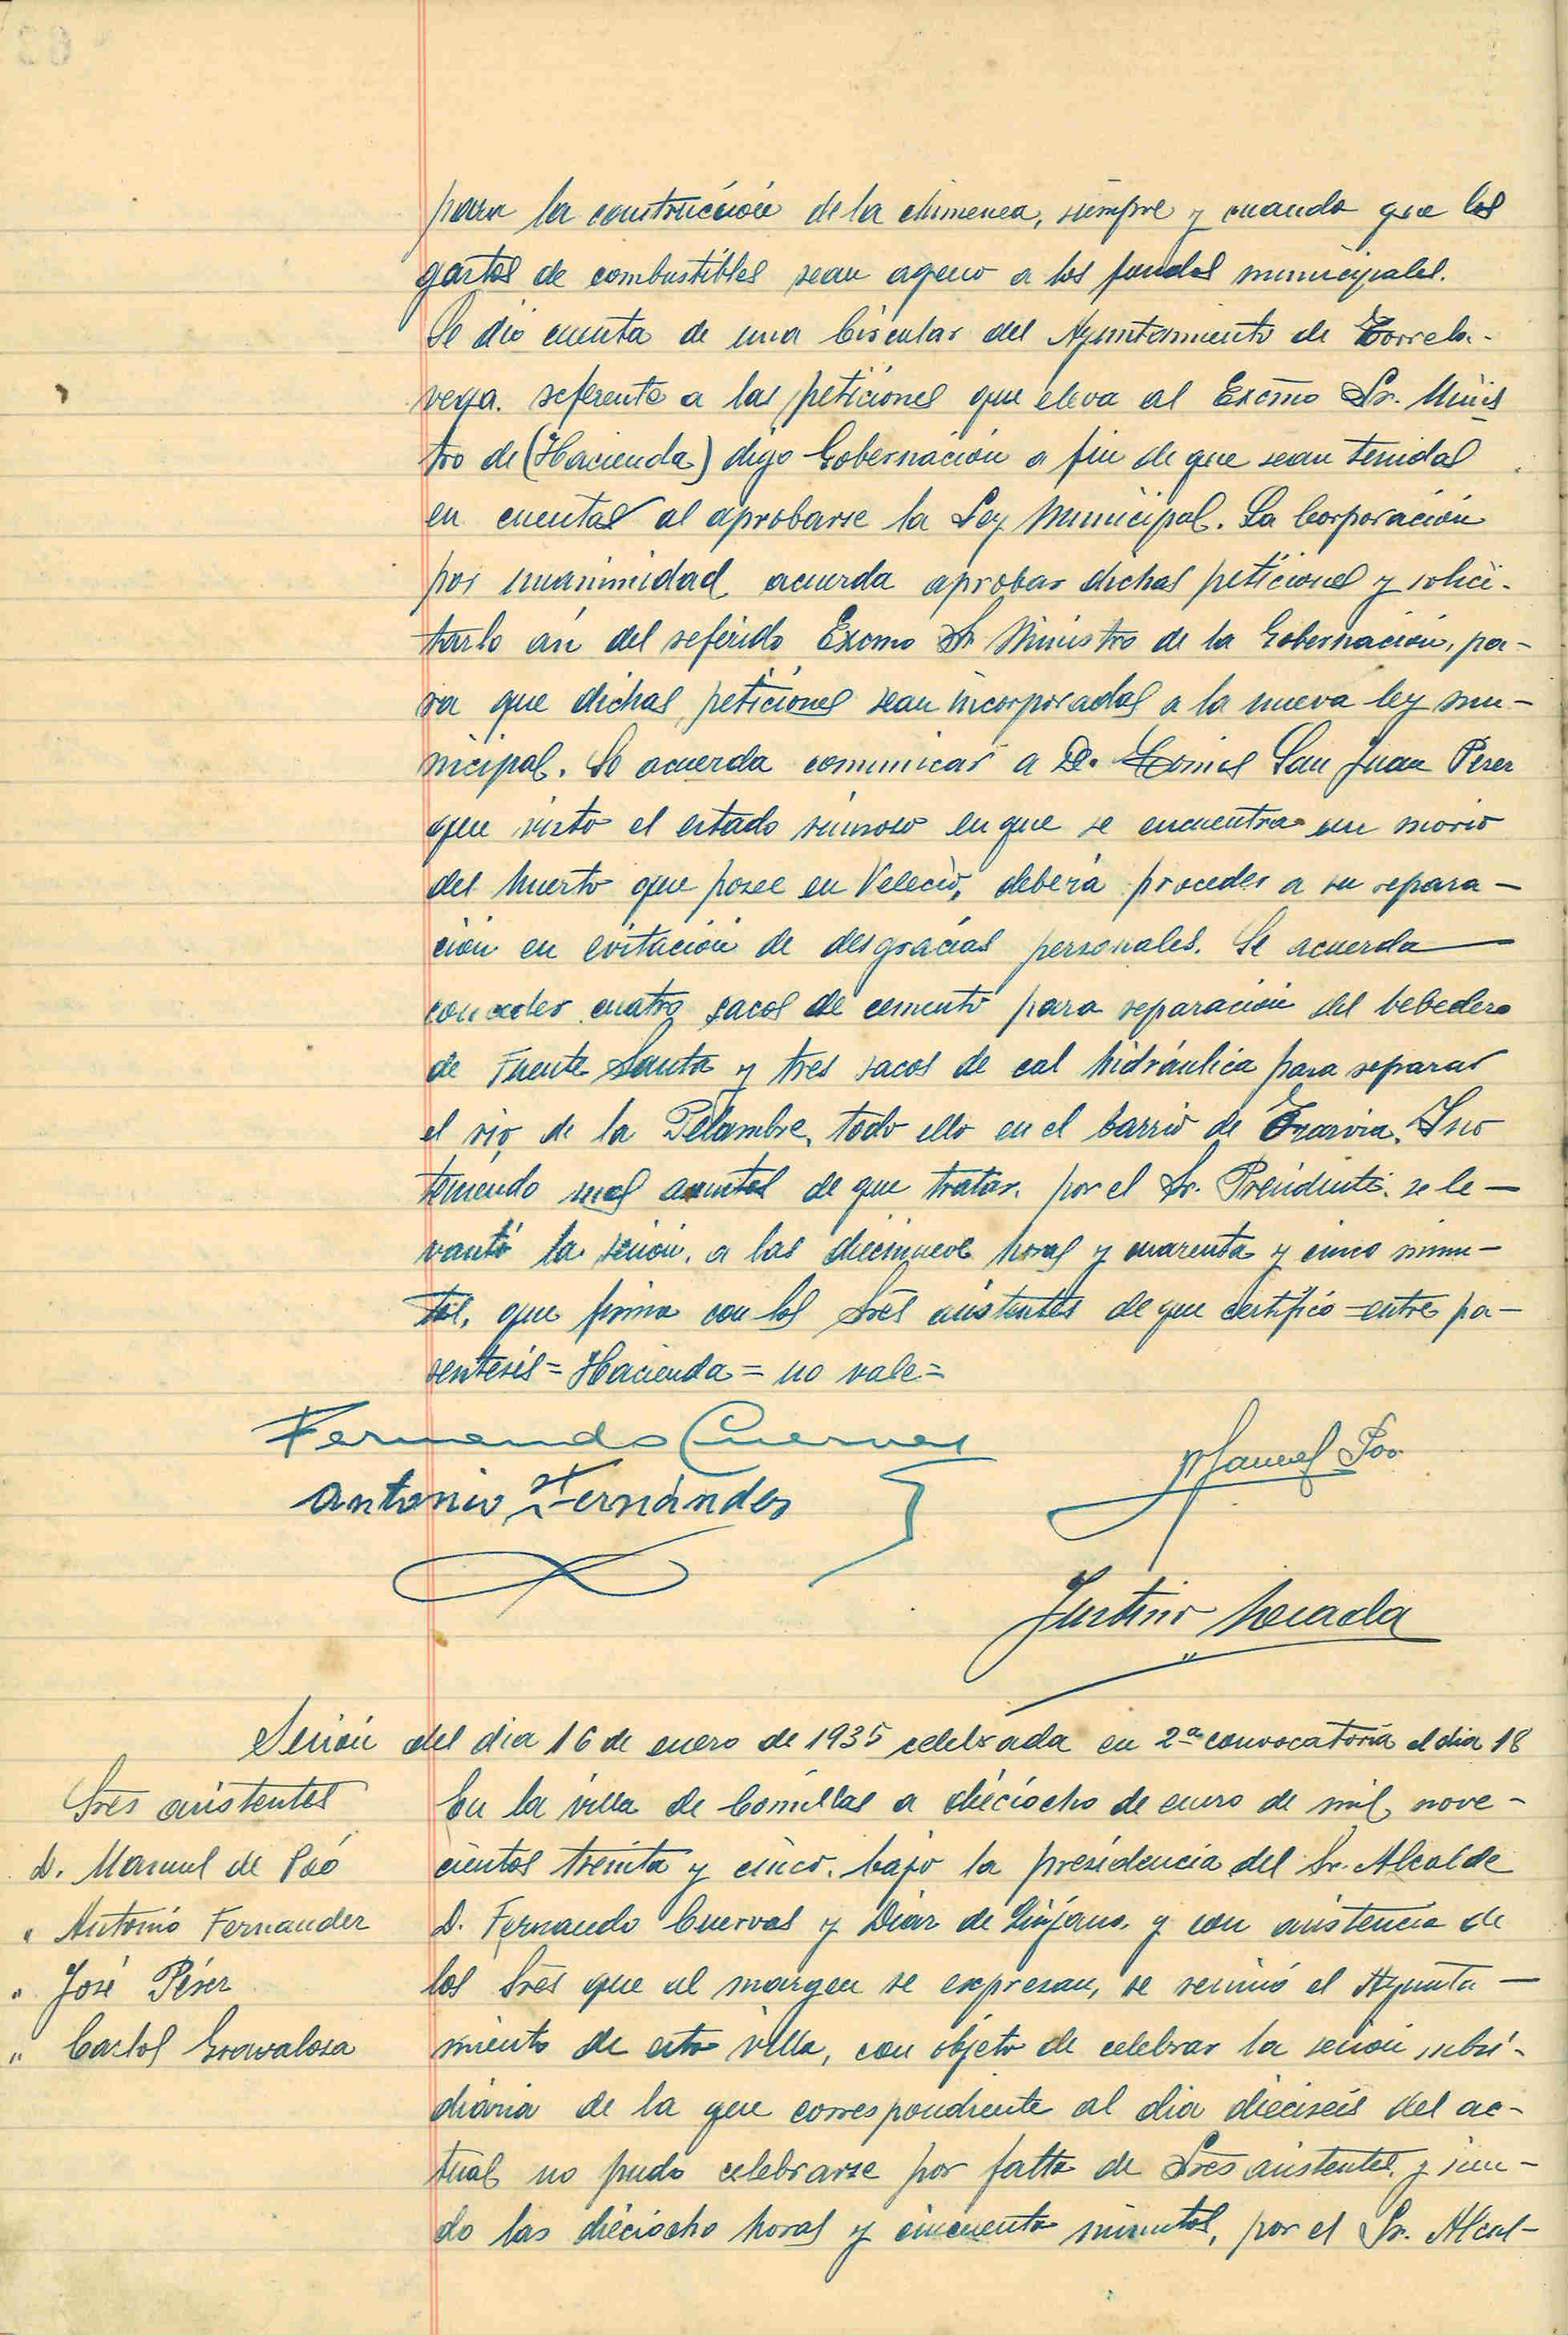 para la construcción de la chimenea, siempre y cuando que los
gastos de combustibles sean ageno a los fondos municipales.
Se dió cuenta de una Circular del Ayuntamiento de Torrela-
vega. referente a las peticiones que eleva al Excmo Sr. Minis
tro de (Hacienda) digo Gobernación a fin de que sean tenidas
en cuentas al aprobarse la Ley Municipal. La Corporación
por unanimidad acuerda aprobar dichas peticiones y solici-
tarlo así del referido Excmo Sr Ministro de la Gobernación, pa-
ra que dichas peticiones sean incorporadas a la nueva ley mu-
nicipal. Se acuerda comunicar a D. San Juan Perez
que visto el estado ruinoso en que se encuentra un morio
del huerto que posee en Velecio, deberá proceder a su repara-
ción en evitación de desgracias personales. Se acuerda
conceder cuatro sacos de cemento para reparación del bebedero
de Fuente Santa y tres sacos de cal hidráulica para reparar
el rio de la Pelambre, todo ello en el barrio de . Y no
teniendo mas asuntos de que tratar, por el Sr. Presidente. se le-
vantó la sesión, a las diecinueve horas y cuarenta y cinco minu-
tos, que firma con los Sres asistentes de que certifico = entre pa-
rentesis = Hacienda = no vale =
Fernando Cuervas
Manuel Poo
Antonio Fernández
Justino
Sesión del dia 16 de enero de 1935 celebrada en 2ª convocatoria el dia 18
Sres asistentes
D. Manuel de Poó
" Antonio Fernandez
" José Pérez
" Carlos
En la villa de Comillas a dieciocho de enero de mil nove-
cientos treinta y cinco. bajo la presidencia del Sr. Alcalde
D. Fernando Cuervas y Diaz de Quijano, y con asistencia de
los Sres que al margen se expresan, se reunió el Ayunta-
miento de esta villa, con objeto de celebrar la sesión subsi-
diaria de la que correspondiente al dia dieciseis del ac-
tual no pudo celebrarse por falta de Sres asistentes, y sien-
do las dieciocho horas y cincuenta minutos, por el Sr. Alcal-